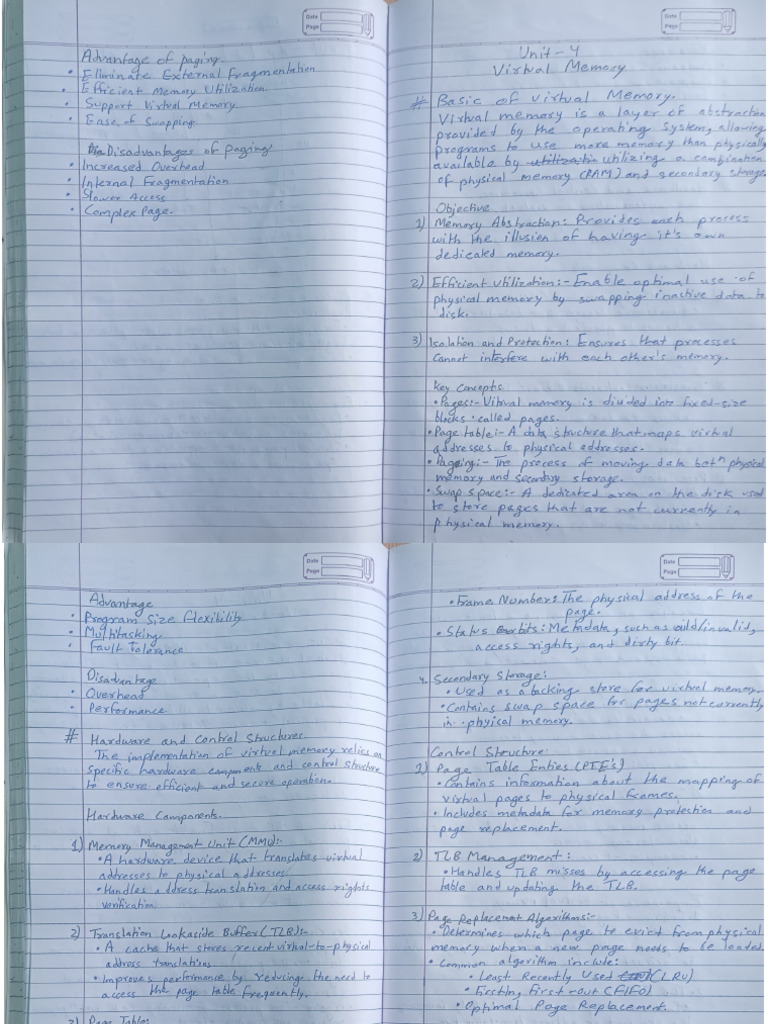 Date
Page
Advantage of paging.
• Elliminate External Fragmentation
• Efficient Memory Utilization
• Support Virtual Memory
• Ease of Swapping.
Disadvantages of Paging
• Increased Overhead
• Internal Fragmentation
• Slower Access
• Complex Page.
Date
Page
Unit - 4
Virtual Memory
# Basic of virtual Memory.
Virtual memory is a layer of abstraction
provided by the operating system, allowing
programs to use more memory than physically
available by utilizing a combination
of physical memory (RAM) and secondary storage.
Objective
1) Memory Abstraction: Provides each process
with the illusion of having it's own
dedicated memory.
2) Efficient Utilization:- Enable optimal use of
physical memory by swapping inactive data to
disk.
3) Isolation and Protection: Ensures that processes
cannot interfere with each other's memory.
Key Concepts
• Pages:- Vitual memory is divided into fixed-size
blocks called pages.
• Page table:- A data structure that maps virtual
addresses to physical addresses.
• Paging:- The process of moving data betn physical
memory and secondary storage.
• Swap space:- A dedicated area on the disk used
to store pages that are not currently in
physical memory.
Date
Page
Advantage
• Program Size flexibility
• Multitasking
• Fault Tolerance
Disadvantage
• Overhead
• Performance
# Hardware and Control Structures.
The implementation of virtual memory relies on
specific hardware components and control structure
to ensure efficient and secure operation.
Hardware Components.
1) Memory Management Unit (MMU):-
• A hardware device that translates virtual
addresses to physical addresses.
• Handles address translation and access rights
verification
2) Translation Lookaside Buffer (TLB):-
• A cache that stores recent virtual-to-physical
address translations.
• Improves performance by reducing the need to
access the page table frequently.
3) Page Table:
Date
Page
• Frame Number: The physical address of the
page.
• Status bits: Metadata, such as valid/invalid,
access rights, and dirty bit.
4. Secondary Storage:
• Used as a backing store for virtual memory
• Contains swap space for pages not currently
in physical memory.
Control Structure:
1) Page Table Enties (PTE's)
• Contains information about the mapping of
virtual pages to physical frames.
• Includes metadata for memory protection and
page replacement.
2) TLB Management:
• Handles TLB misses by accessing the page
table and updating the TLB.
3) Page Replacement Algorithms:-
• Determines which page to evict from physical
memory when a new page needs to be loaded.
• Common algorithm include:
• Least Recently Used (LRU)
• First-in first-out (FIFO)
• Optimal Page Replacement.